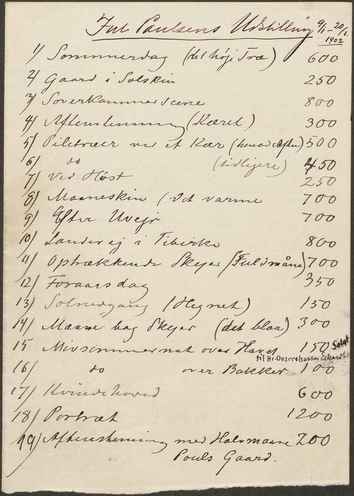 Jul Paulsens Udstilling 9/1-20/1 1902
1) Sommerdag (det høje Træ) 600
2) Gaard i Solskin 250
3) Soverkammerscene 800
4) Aftenstemning (Kæret) 300
5) Piletræer ved et Kær ( 500
6) do (tidligere) 450
7) Ved Høst 250
8) Maaneskin / Det varme 700
9) Efter Uvejr 700
10) Landevej i Tibirke 800
11) Optrækkende Skyer (Fuldmåne) 700
12) Foraarsdag 350
13) Solnedgang (Hegnet) 150
14) Maane bag Skyer (det blaa) 300
15 Midsommernat over Havet 150 Solgt
til Hr.
16) do over Bakker 100
17) Kvindehoved 600
18) Portræt 1200
19) Aftenstemning med Halvmaane 200
Pouls Gaard.